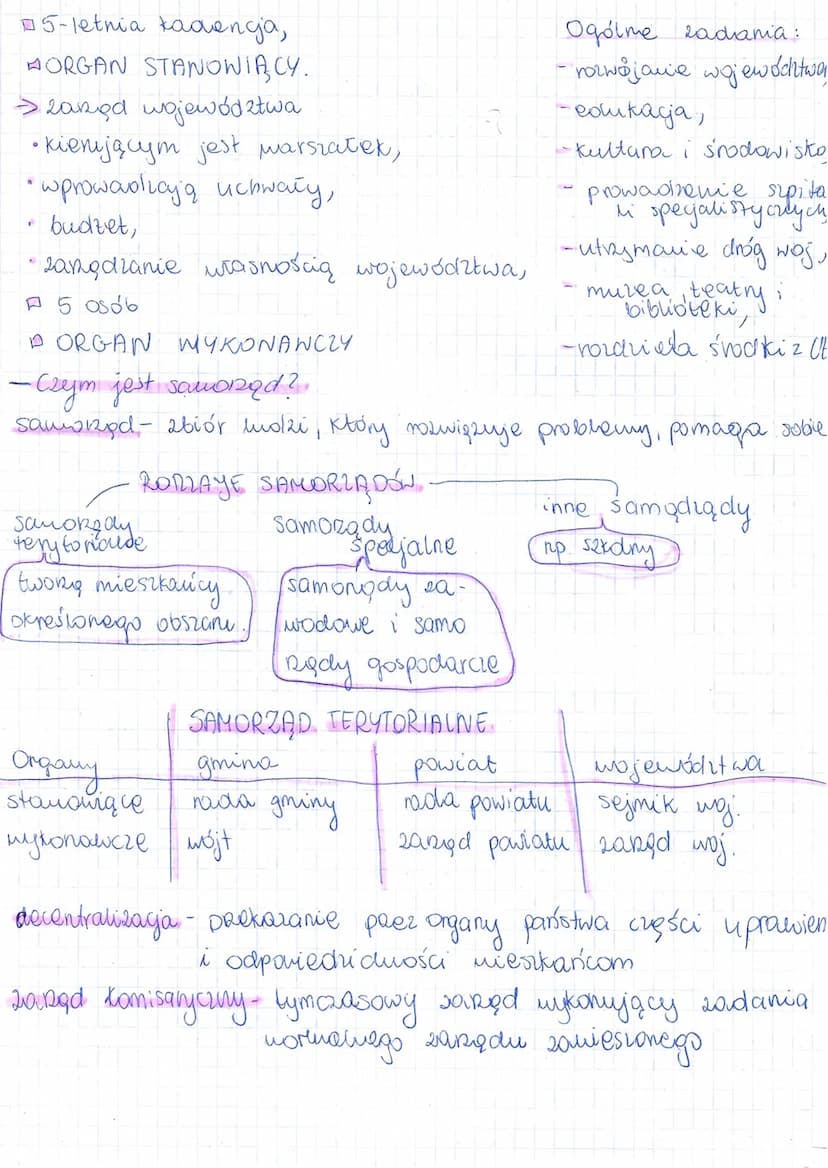 5-letnia kadencja,
ORGAN STANOWIĄCY.
→ zarząd województwa
• kierującym jest marszałek,
• wprowadzają uchwały,
• budżet,
• zarządzanie własnością województwa,
5 osób
ORGAN WYKONAWCZY
Ogólne zadania:
- rozwijanie województwa,
- edukacja,
- kultura i środowisko
- prowadzenie szpita
li specjalistycznych,
- utrzymanie dróg woj,
- muzea, teatry i
biblioteki,
- rozdziela środki z
- Czym jest samorząd?
samorząd - zbiór ludzi, który rozwiązuje problemy, pomaga sobie
RODZAJE SAMORZĄDÓW
samorządy
terytorialne
tworzą mieszkańcy
określonego obszaru.
samorządy
specjalne
samorządy za-
wodowe i samo
rządy gospodarcze
inne samądządy
np. szkolny
SAMORZĄD TERYTORIALNE
Organy gmina powiat województwa
stanowiące rada gminy rada powiatu sejmik woj.
wykonawcze wójt zarząd powiatu zarząd woj.
decentralizacja - przekazanie przez organy państwa części uprawien
i odpowiedzialności mieszkańcom
zarząd komisaryczny - tymczasowy zarząd wykonujący zadania
normalnego zarządu zawieszonego